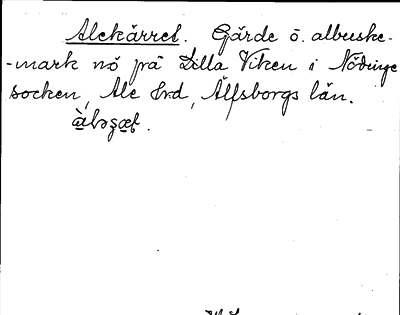 Alekärret. Gärde o. albuske-
-mark nö på Lilla Viken i Nödinge
socken, Ale hrd, Älfsborgs län.